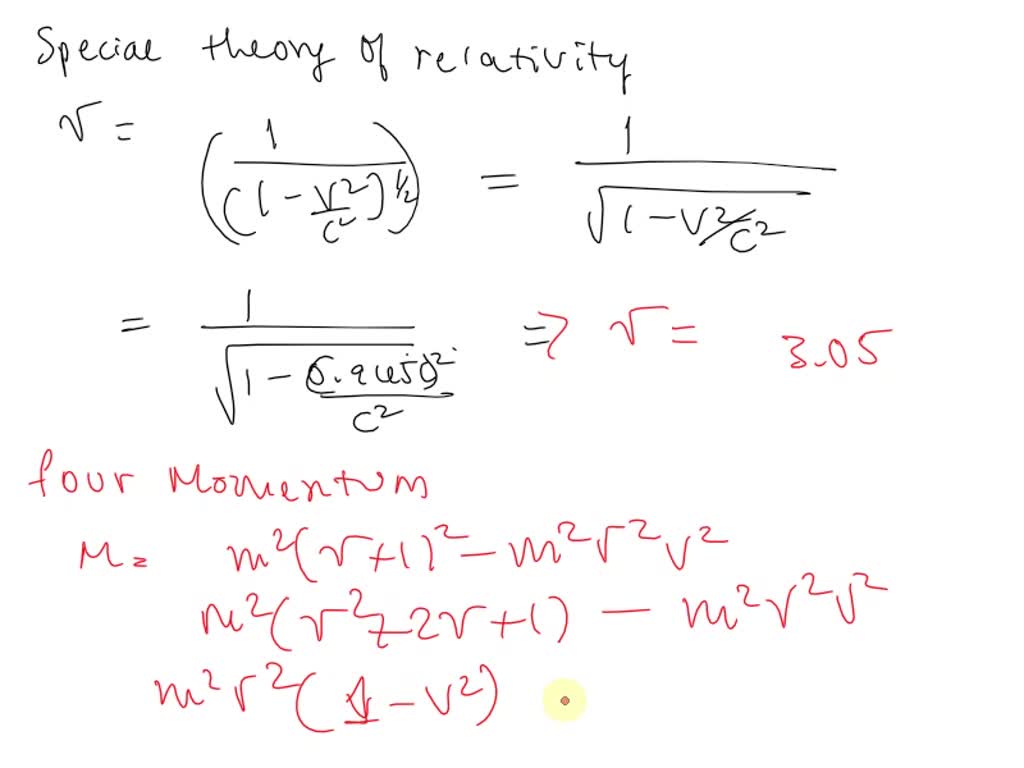 Special theory of relativity
γ = (1/((1 - V²/c²)^1/2)) = 1/√(1 - V²/c²)
= 1/√(1 - (0.945c)²/c²) => γ = 3.05
four Momentum
M = m²(γ+1)² - m²γ²v²
m²(γ²+2γ+1) - m²γ²v²
m²γ²(1 - v²)